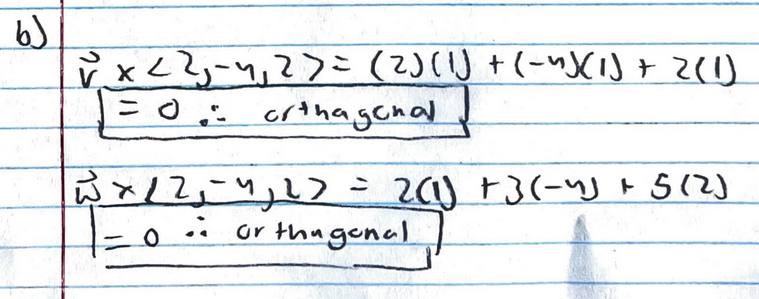 b)
v⃗ × <2,-4,2> = (2)(1) + (-4)(1) + 2(1)
= 0 ∴ orthagonal
w⃗ × <2,-4,2> = 2(1) + 3(-4) + 5(2)
= 0 ∴ orthagonal